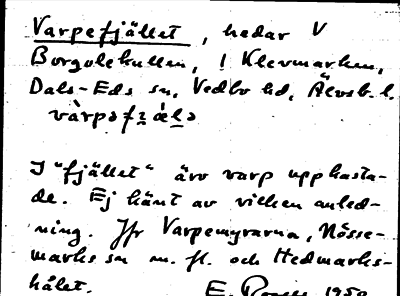 Varpefjället, hedar V
Borgolekullen, i Klevmarken,
Dals-Eds sn, Vedbo hd, Älvsb. l.
I "fjället" äro varp uppkasta-
de. Ej känt av vilken anled-
ning. Jfr Varpemyrarna, Nösse-
marks sn m. fl. och Hedmarks-
hålet.
E. 1950